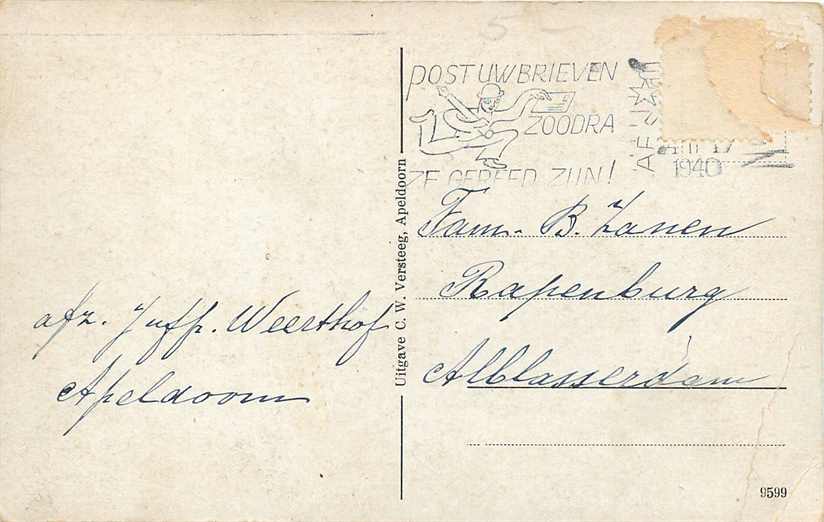 POST UW BRIEVEN
ZOODRA
ZE GEREED ZIJN!
1940
Fam. B. Zanen
Rapenburg
Alblasserdam
afz. Juffr. Weerthof
Apeldoorn
Uitgave C. W. Versteeg, Apeldoorn
9599